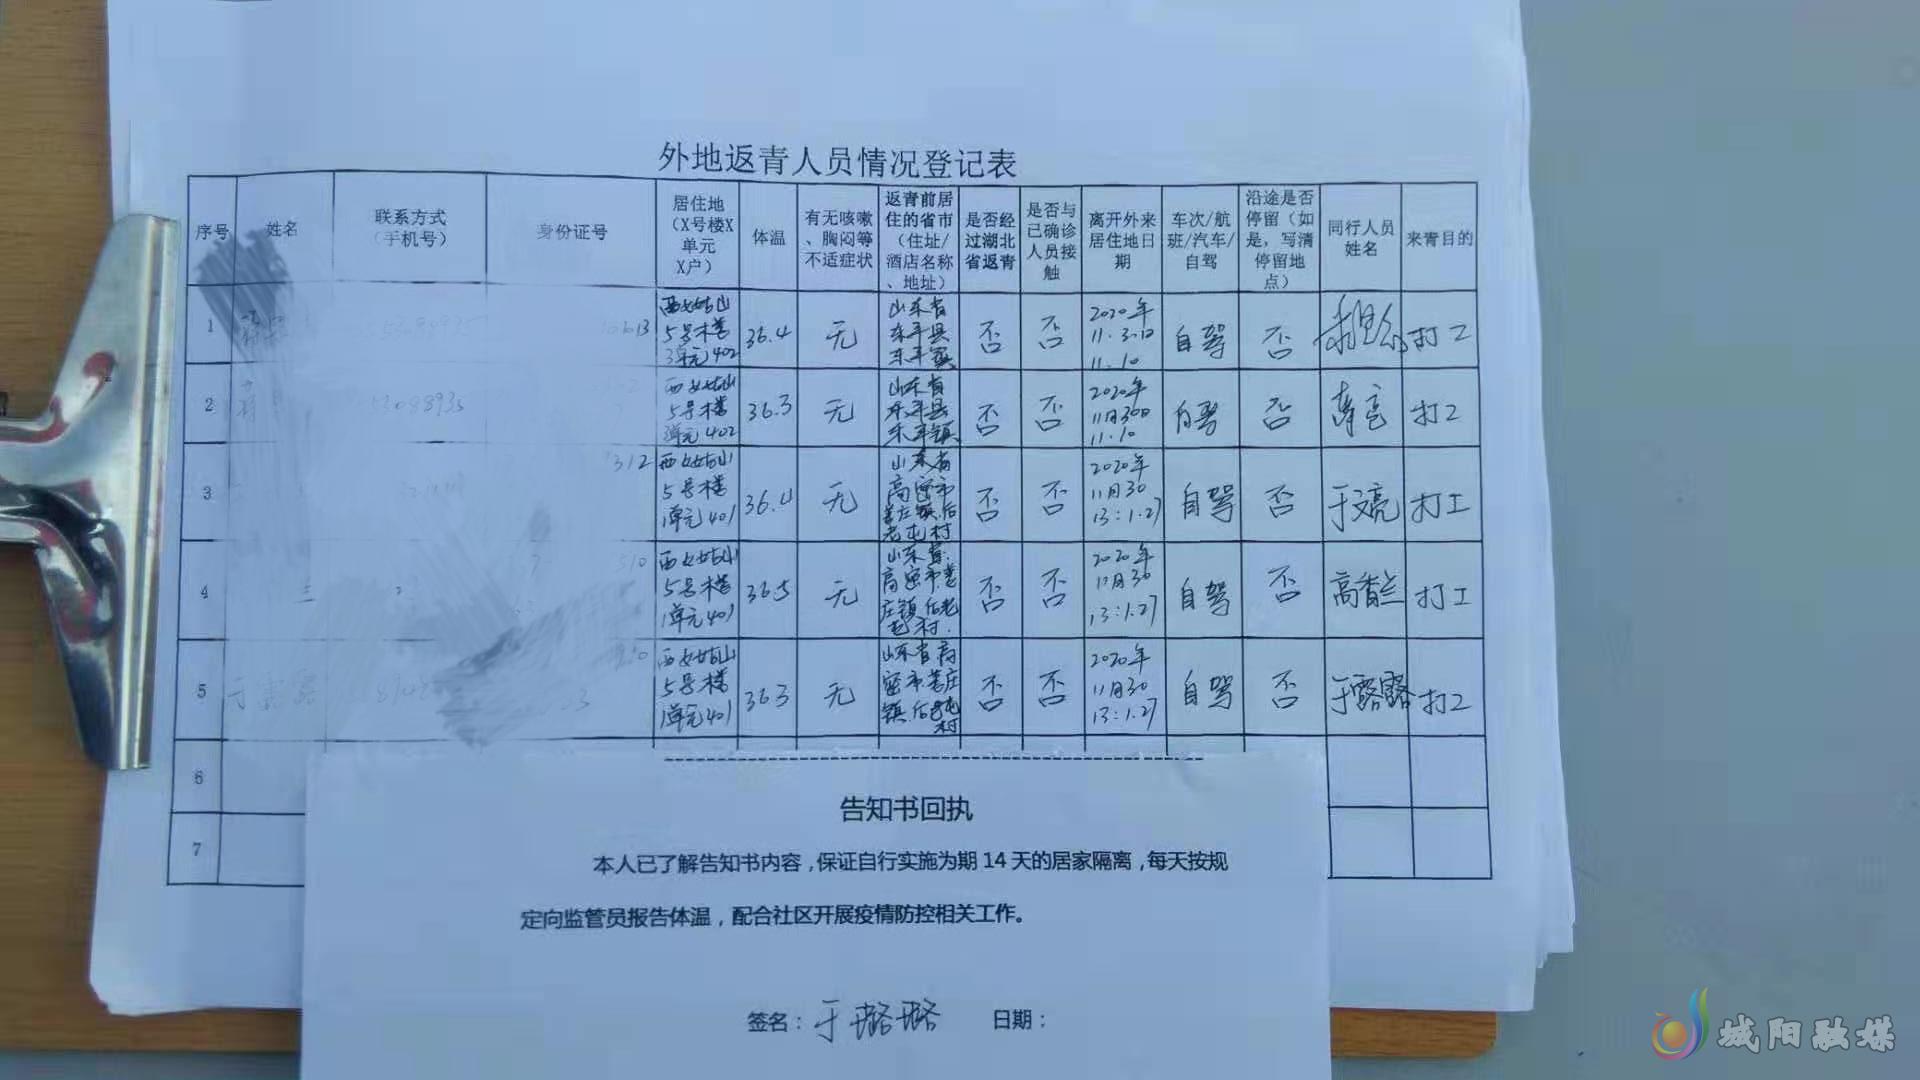 外地返青人员情况登记表
序号 姓名 联系方式（手机号） 身份证号 居住地（X号楼X单元X户） 体温 有无咳嗽、胸闷等不适症状 返青前居住的省市（住址/酒店名称、地址） 是否经过湖北省返青 是否与已确诊人员接触 离开外来居住地日期 车次/航班/汽车/自驾 沿途是否停留（如是，写清停留地点） 同行人员姓名 来青目的
1 西女姑山5号楼3单元402 36.4 无 山东省东平县东平镇 否 否 2020年11.30 11.10 自驾 否 打工
2 西女姑山5号楼3单元402 36.3 无 山东省东平县东平镇 否 否 2020年11月30日 11.10 自驾 否 打工
3 西女姑山5号楼1单元401 36.4 无 山东省高密市姜庄镇后老屯村 否 否 2020年11月30 13:1.27 自驾 否 于文亮 打工
4 西女姑山5号楼1单元401 36.5 无 山东省高密市姜庄镇后老屯村. 否 否 2020年11月30 13:1.27 自驾 否 高香兰 打工
5 西女姑山5号楼1单元401 36.3 无 山东省高密市姜庄镇后老屯村 否 否 2020年11月30 13:1.27 自驾 否 于露露 打工
6
7
告知书回执
本人已了解告知书内容，保证自行实施为期14天的居家隔离，每天按规
定向监管员报告体温，配合社区开展疫情防控相关工作。
签名：于璐璐 日期：
城阳融媒